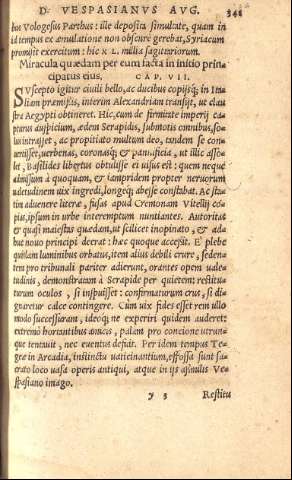 D. VESPASIANVS AVG. 341
hoc Vologesus Parthus: ille deposita simultate, quam in id
tempus ex æmulatione non obscurè gerebat, Syriacum
promisit exercitum: hic XL. millia sagittariorum.
Miracula quædam per eum facta in initio prin-
cipatus eius. CAP. VII.
SVscepto igitur ciuili bello, ac ducibus copijsq; in Ita
liam præmissis, interim Alexandriam transijt, ut clau
stra Aegypti obtineret. Hic, cum de firmitate imperij ca
ptaret auspicium, ædem Serapidis, submotis omnibus, so
lus intrasset, ac propitiato multum deo, tandem se con-
uertisset, uerbenas, coronasq; & panificia, ut illic assο
let, Basilides libertus obtulisse ei uisus est: quem neque
admissum à quoquam, & iampridem propter neruorum
ualetudinem uix ingredi, longeq; abesse constabat. Ac sta
tim aduenere literæ, fusas apud Cremonam Vitellij co
pias, ipsum in urbe interemptum nuntiantes. Autoritas
& quasi maiestas quædam, ut scilicet inopinato, & ad
huc nouo principi deerat: hæc quoque accessit. E plebe
quidam luminibus orbatus, item alius debili crure, seden
tem pro tribunali pariter adierunt, orantes opem uale-
tudinis, demonstratam à Serapide per quietem: restitu-
turum oculos, si inspuisset: confirmaturum crus, si di-
gnaretur calce contingere. Cùm uix fides esset rem ullo
modo successuram, ideoq; ne experiri quidem auderet:
extremò hortantibus amicis, palam pro concione utrun-
que tentauit, nec euentus defuit. Per idem tempus Te-
geæ in Arcadia, instinctu uaticinantium, effossa sunt sa-
crato loco uasa operis antiqui, atque in ijs assimilis Ve-
spasiano imago.
y 3 Restitu